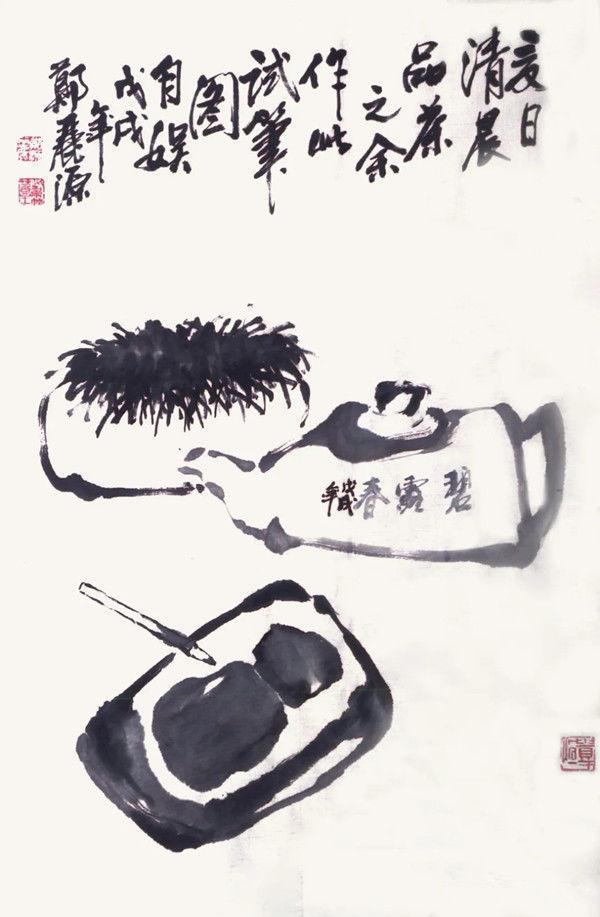 夏日
清晨
品茶
之余
作此
试筆
图
自娱
戊戌
年
鄭発源
碧露春
戊戌年